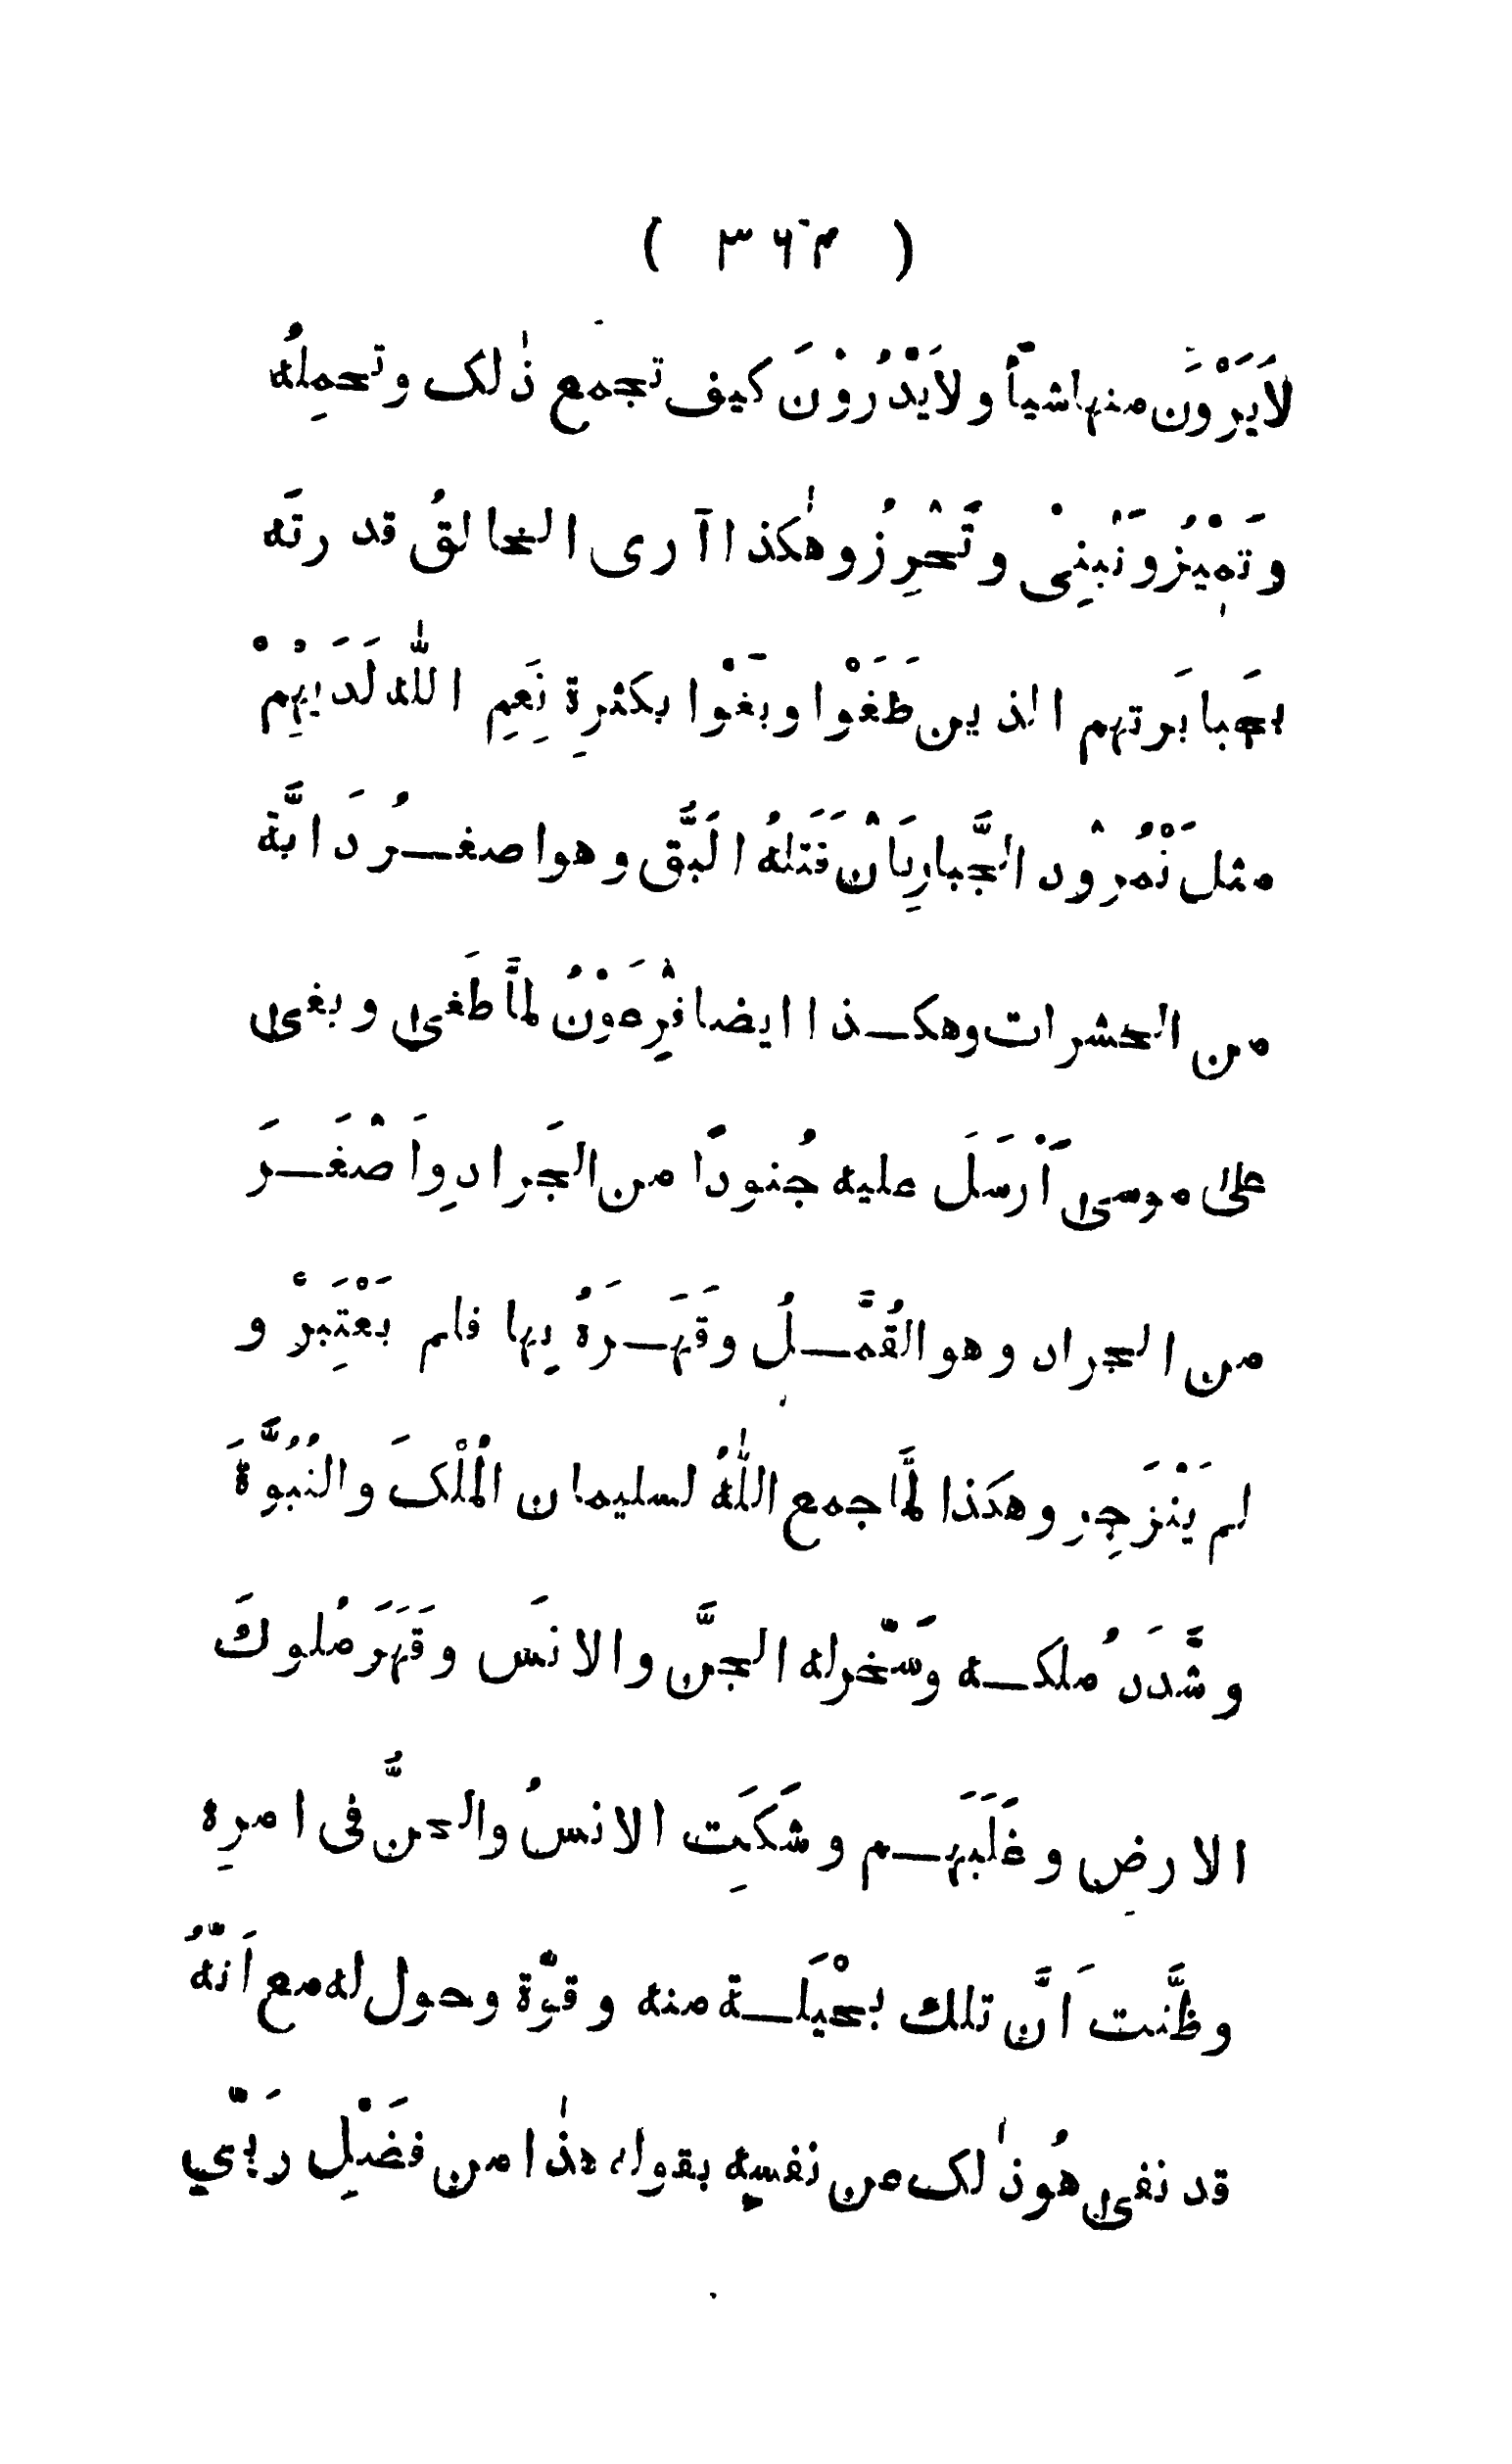 ( ٣٦٣ )
لاَيَرْوَنَ منها شيأً ولايَدْرُوْنَ كيف تجمع ذٰلك وتحمِلُه
وتمِيْزُ وتَبْنِىْ وتَحْرِزُ وهٰكذا آرى الخالقُ قدرتَه
بجَبابَرتهم الذين طَغَوْا وبَغَوْا بكثرِة نِعَمِ اللّٰه لَدَيْهِمْ
مثل نَمْرُوْد الجَّبارِبَانْ قَتَلهُ الَبَّق وهوا صغـرُ دَابَّة
من الحشرات وهكـذا ايضا فِرْعَوْنُ لمَّا طَغى وبغى
على موسى آرْسَلَ عليه جُنودًا من الجَرادِ واَصْغَـرَ
من الجراد وهو القُمَّـلُ وقَهَـرَهُ بِها فلم يَعْتَبِرْ و
لم يَنْزَجِر وهكَذا لمَّا جمع اللّٰهُ لسليمان المُلْكَ والنُبُوَّةَ
وشَّدَدَ مُلكـه وسَّخرله الجنَّ والانسَ وقَهَرَ مُلوكَ
الارضِ وغَلَبَهـم وشَكَتِ الانسُ والجنُّ فى امرِه
وظَّنت اَنَّ تلك بحْيَلـة منه وقوّة وحول له مع اَنّهُ
قد نفى هُو ذٰلك عن نفسِه بقوله هذٰا من فضَيْلِ رَبّي